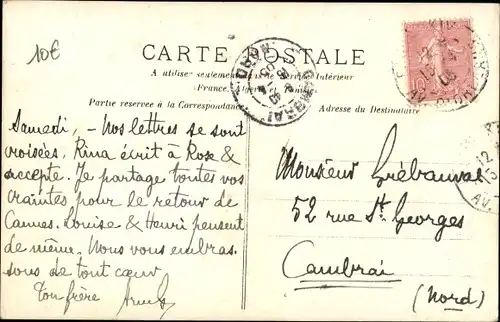 10€
CARTE POSTALE
A utiliser seulement dans le Service Intérieur
(France, Algérie et Tunisie)
Partie réservée à la Correspondance
Adresse du Destinataire
Samedi, - Nos lettres se sont
croisées. Rina écrit à Rose &
accepte. Je partage toutes vos
craintes pour le retour de
Cannes. Louise & Henri pensent
de même. Nous vous embras
sons de tout cœur
Ton frère
Monsieur Grébauval
52 rue St Georges
Cambrai
(Nord)
CAMBRAI
NORD